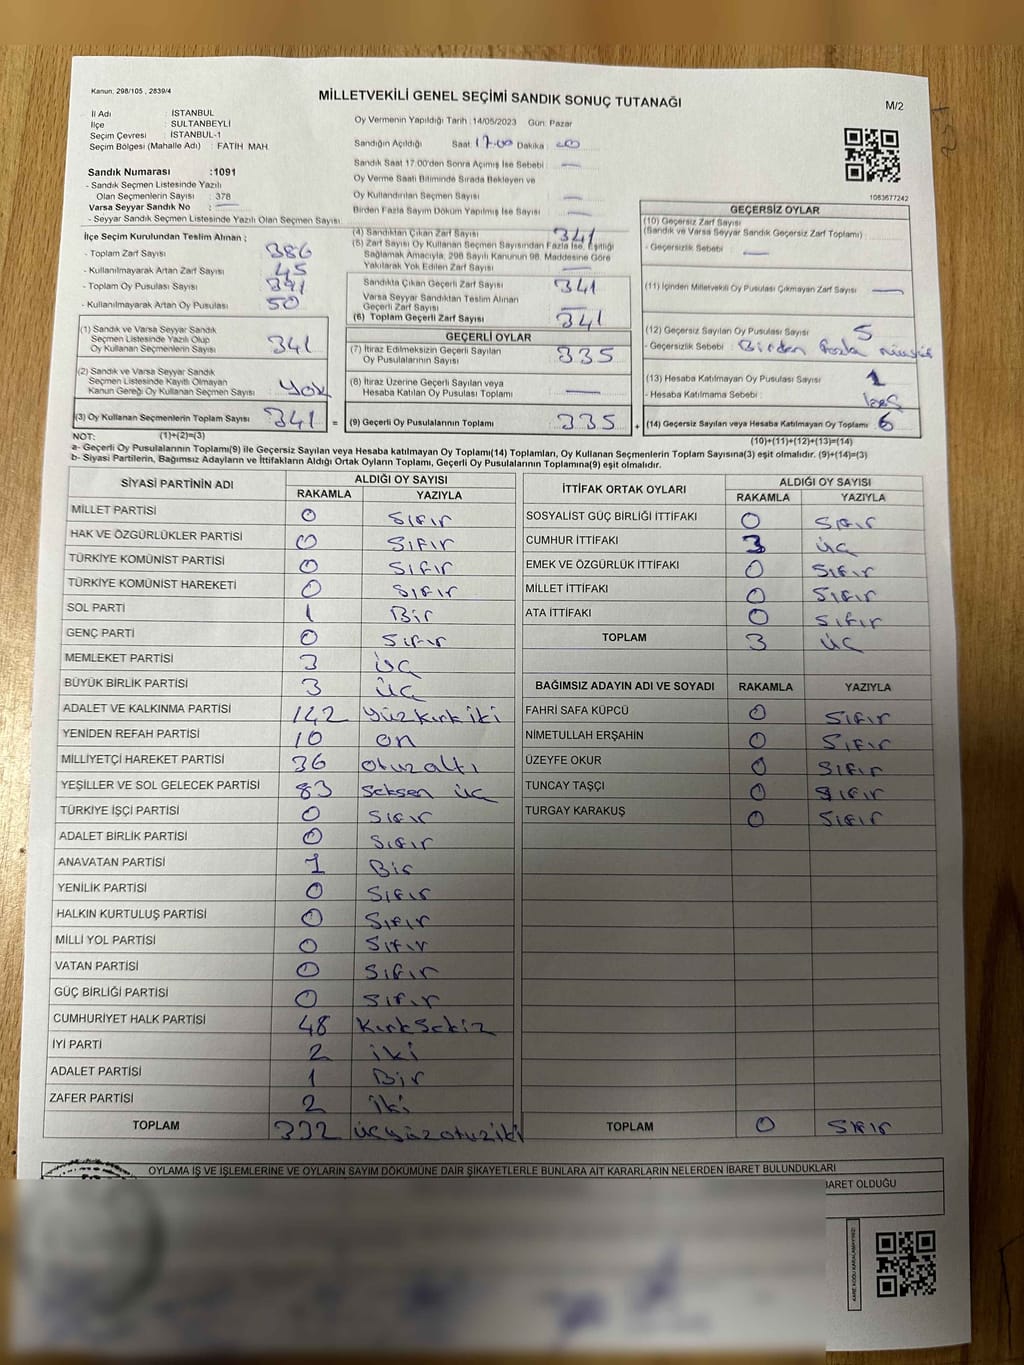 Kanun: 298/105 , 2839/4
MİLLETVEKİLİ GENEL SEÇİMİ SANDIK SONUÇ TUTANAĞI
M/2
İl Adı : İSTANBUL
İlçe : SULTANBEYLİ
Seçim Çevresi : İSTANBUL-1
Seçim Bölgesi (Mahalle Adı) : FATİH MAH.
Oy Vermenin Yapıldığı Tarih :14/05/2023 Gün: Pazar
Sandığın Açıldığı Saat: 17.00 Dakika : 00
Sandık Saat 17:00'den Sonra Açımış İse Sebebi : —
Oy Verme Saati Bitiminde Sırada Bekleyen ve
Oy Kullandırılan Seçmen Sayısı : —
Birden Fazla Sayım Döküm Yapılmış İse Sayısı : —
1083677242
Sandık Numarası :1091
- Sandık Seçmen Listesinde Yazılı
Olan Seçmenlerin Sayısı : 378
Varsa Seyyar Sandık No : —
- Seyyar Sandık Seçmen Listesinde Yazılı Olan Seçmen Sayısı:
İlçe Seçim Kurulundan Teslim Alınan ;
- Toplam Zarf Sayısı : 386
- Kullanılmayarak Artan Zarf Sayısı : 45
- Toplam Oy Pusulası Sayısı : 391
- Kullanılmayarak Artan Oy Pusulası : 50
(1) Sandık ve Varsa Seyyar Sandık
Seçmen Listesinde Yazılı Olup
Oy Kullanan Seçmenlerin Sayısı : 341
(2) Sandık ve Varsa Seyyar Sandık
Seçmen Listesinde Kayıtlı Olmayan
Kanun Gereği Oy Kullanan Seçmen Sayısı : Yok
(3) Oy Kullanan Seçmenlerin Toplam Sayısı : 341 =
(4) Sandıktan Çıkan Zarf Sayısı : 341
(5) Zarf Sayısı Oy Kullanan Seçmen Sayısından Fazla İse, Eşitliği
Sağlamak Amacıyla, 298 Sayılı Kanunun 98. Maddesine Göre
Yakılarak Yok Edilen Zarf Sayısı : —
Sandıkta Çıkan Geçerli Zarf Sayısı : 341
Varsa Seyyar Sandıktan Teslim Alınan
Geçerli Zarf Sayısı : —
(6) Toplam Geçerli Zarf Sayısı : 341
GEÇERLİ OYLAR
(7) İtiraz Edilmeksizin Geçerli Sayılan
Oy Pusulalarının Sayısı : 335
(8) İtiraz Üzerine Geçerli Sayılan veya
Hesaba Katılan Oy Pusulası Toplamı : —
(9) Geçerli Oy Pusulalarının Toplamı : 335 +
GEÇERSİZ OYLAR
(10) Geçersiz Zarf Sayısı
(Sandık ve Varsa Seyyar Sandık Geçersiz Zarf Toplamı) :
- Geçersizlik Sebebi : —
(11) İçinden Milletvekili Oy Pusulası Çıkmayan Zarf Sayısı : —
(12) Geçersiz Sayılan Oy Pusulası Sayısı : 5
- Geçersizlik Sebebi : Birden fazla
(13) Hesaba Katılmayan Oy Pusulası Sayısı : 1
- Hesaba Katılmama Sebebi :
(14) Geçersiz Sayılan veya Hesaba Katılmayan Oy Toplamı : 6
NOT: (1)+(2)=(3)
(10)+(11)+(12)+(13)=(14)
a- Geçerli Oy Pusulalarının Toplamı(9) ile Geçersiz Sayılan veya Hesaba katılmayan Oy Toplamı(14) Toplamları, Oy Kullanan Seçmenlerin Toplam Sayısına(3) eşit olmalıdır. (9)+(14)=(3)
b- Siyasi Partilerin, Bağımsız Adayların ve İttifakların Aldığı Ortak Oyların Toplamı, Geçerli Oy Pusulalarının Toplamına(9) eşit olmalıdır.
SİYASİ PARTİNİN ADI ALDIĞI OY SAYISI
RAKAMLA YAZIYLA
MİLLET PARTİSİ 0 Sıfır
HAK VE ÖZGÜRLÜKLER PARTİSİ 0 Sıfır
TÜRKİYE KOMÜNİST PARTİSİ 0 Sıfır
TÜRKİYE KOMÜNİST HAREKETİ 0 Sıfır
SOL PARTİ 1 Bir
GENÇ PARTİ 0 Sıfır
MEMLEKET PARTİSİ 3 üç
BÜYÜK BİRLİK PARTİSİ 3 üç
ADALET VE KALKINMA PARTİSİ 142 yüzkırkiki
YENİDEN REFAH PARTİSİ 10 on
MİLLİYETÇİ HAREKET PARTİSİ 36 otuzaltı
YEŞİLLER VE SOL GELECEK PARTİSİ 83 Seksen üç
TÜRKİYE İŞÇİ PARTİSİ 0 Sıfır
ADALET BİRLİK PARTİSİ 0 Sıfır
ANAVATAN PARTİSİ 1 Bir
YENİLİK PARTİSİ 0 Sıfır
HALKIN KURTULUŞ PARTİSİ 0 Sıfır
MİLLİ YOL PARTİSİ 0 Sıfır
VATAN PARTİSİ 0 Sıfır
GÜÇ BİRLİĞİ PARTİSİ 0 Sıfır
CUMHURİYET HALK PARTİSİ 48 KırkSekiz
İYİ PARTİ 2 iki
ADALET PARTİSİ 1 Bir
ZAFER PARTİSİ 2 iki
TOPLAM 332 üçyüzotuziki
İTTİFAK ORTAK OYLARI ALDIĞI OY SAYISI
RAKAMLA YAZIYLA
SOSYALİST GÜÇ BİRLİĞİ İTTİFAKI 0 Sıfır
CUMHUR İTTİFAKI 3 üç
EMEK VE ÖZGÜRLÜK İTTİFAKI 0 Sıfır
MİLLET İTTİFAKI 0 Sıfır
ATA İTTİFAKI 0 Sıfır
TOPLAM 3 üç
BAĞIMSIZ ADAYIN ADI VE SOYADI RAKAMLA YAZIYLA
FAHRİ SAFA KÜPCÜ 0 Sıfır
NİMETULLAH ERŞAHİN 0 Sıfır
ÜZEYFE OKUR 0 Sıfır
TUNCAY TAŞÇI 0 Sıfır
TURGAY KARAKUŞ 0 Sıfır
TOPLAM 0 Sıfır
OYLAMA İŞ VE İŞLEMLERİNE VE OYLARIN SAYIM DÖKÜMÜNE DAİR ŞİKAYETLERLE BUNLARA AİT KARARLARIN NELERDEN İBARET BULUNDUKLARI
İBARET OLDUĞU